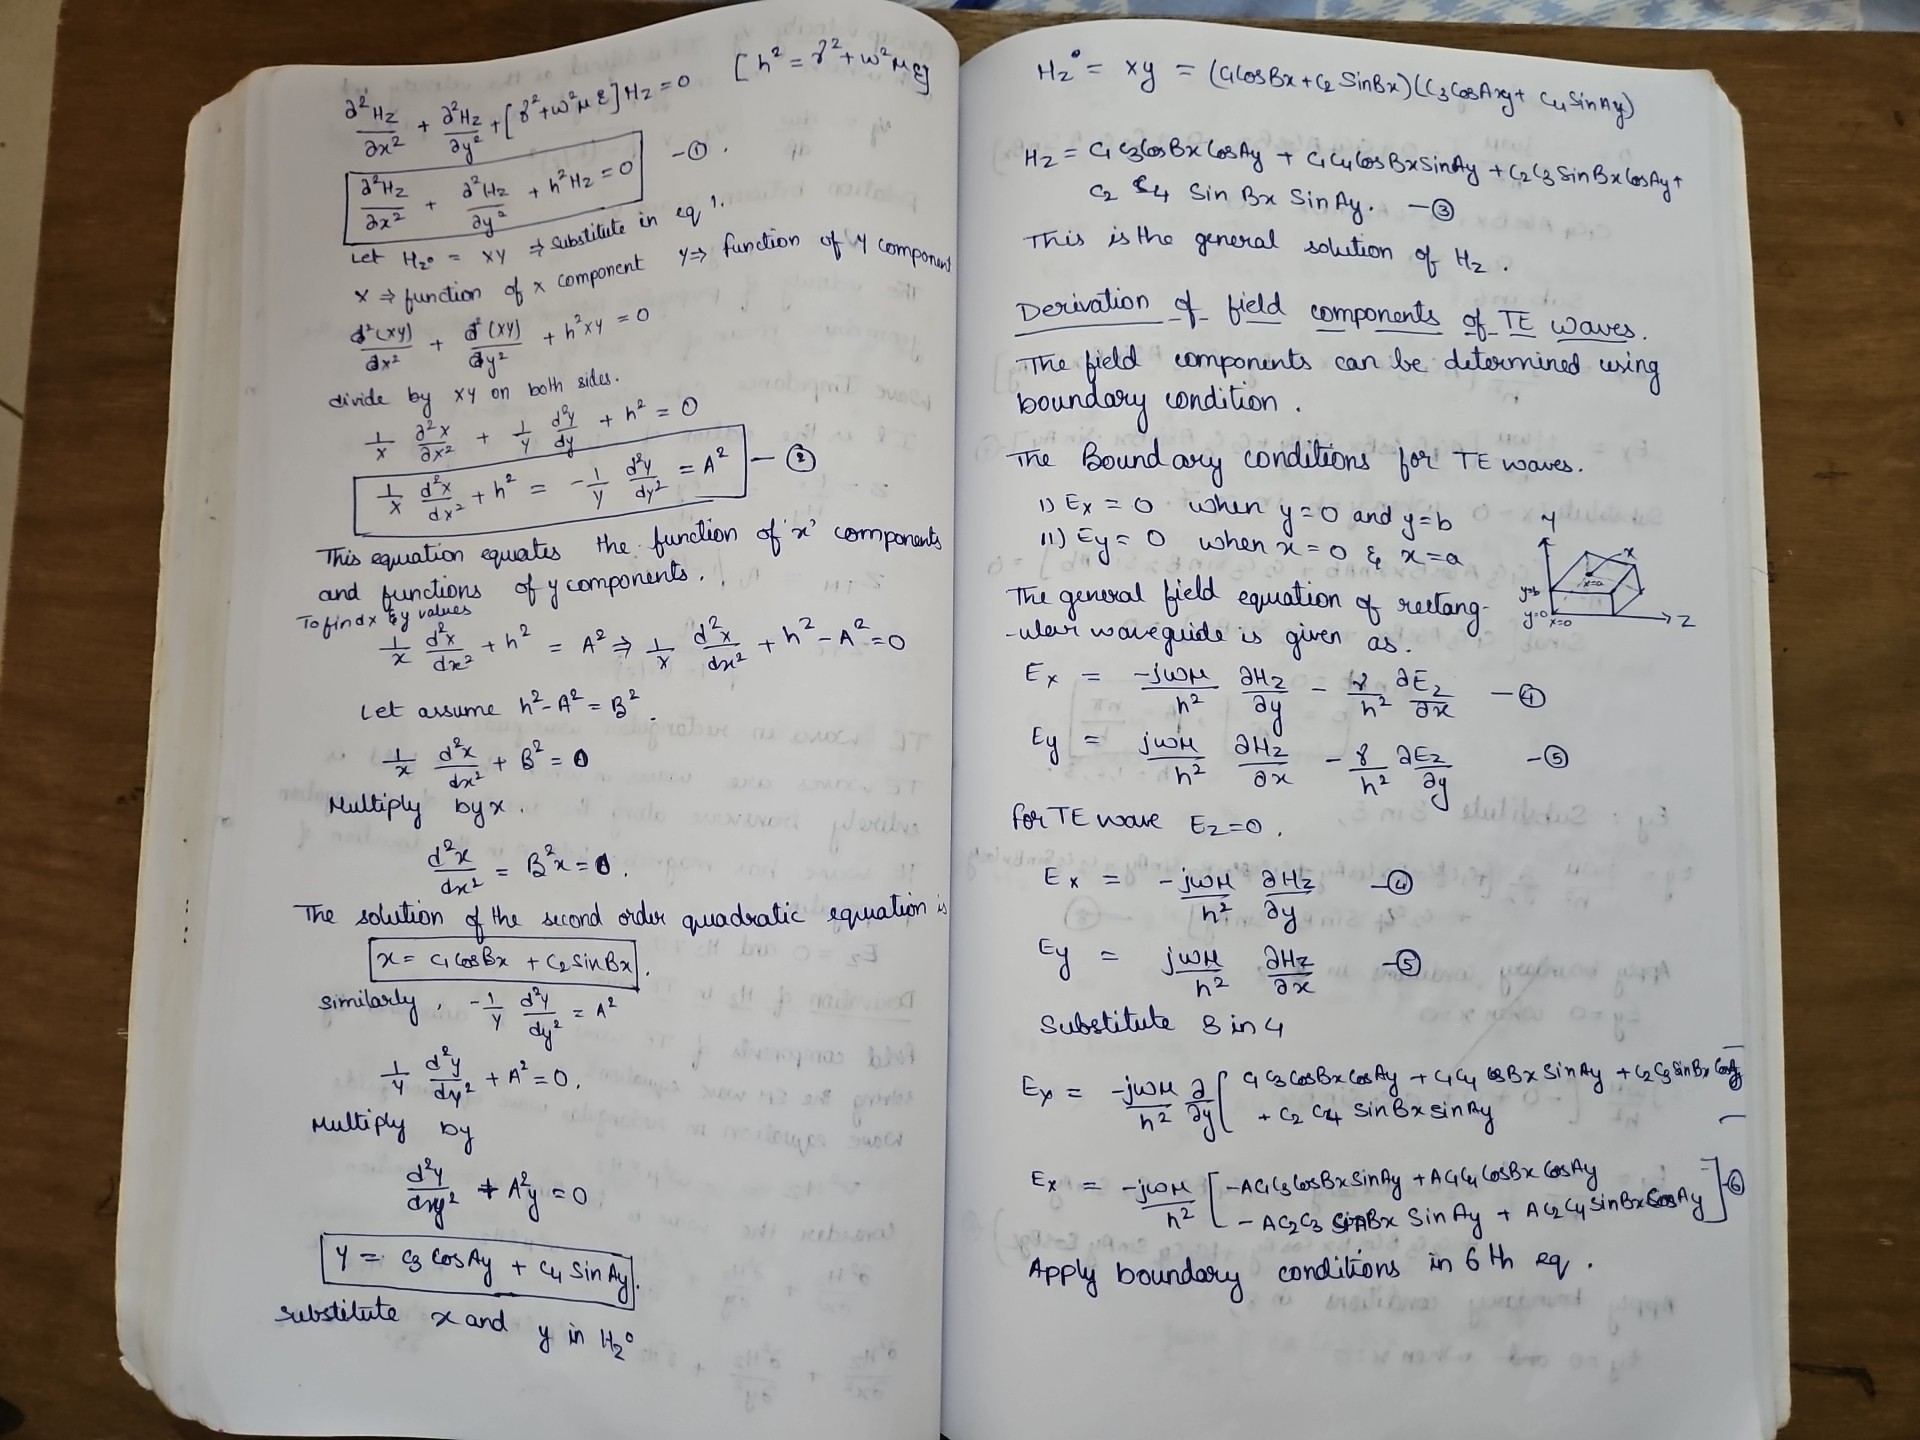 ∂²Hz/∂x² + ∂²Hz/∂y² + [γ² + ω²με] Hz = 0 [h² = γ² + ω²με]
∂²Hz/∂x² + ∂²Hz/∂y² + h²Hz = 0 - ①.
Let Hz° = XY ⇒ substitute in eq 1.
X ⇒ function of x component Y ⇒ function of Y component
d²(XY)/dx² + d²(XY)/dy² + h²XY = 0
divide by XY on both sides.
1/X ∂²X/∂x² + 1/Y d²y/dy + h² = 0
1/X d²X/dx² + h² = -1/Y d²Y/dy² = A² - ②
This equation equates the function of 'x' components
and functions of y components.
To find x & y values
1/X d²x/dx² + h² = A² ⇒ 1/X d²x/dx² + h² - A² = 0
Let assume h² - A² = B².
1/x d²x/dx² + B² = 0
Multiply by x.
d²x/dx² = B²x = 0.
The solution of the second order quadratic equation is
x = C1 Cos Bx + C2 Sin Bx.
Similarly, -1/Y d²y/dy² = A²
1/Y d²y/dy² + A² = 0.
Multiply by
d²y/dy² + A²y = 0
Y = C3 Cos Ay + C4 Sin Ay.
substitute x and y in Hz°
Hz° = xy = (C1 Cos Bx + C2 Sin Bx)(C3 Cos Ay + C4 Sin Ay)
Hz = C1 C3 Cos Bx Cos Ay + C1 C4 Cos Bx Sin Ay + C2 C3 Sin Bx Cos Ay +
C2 C4 Sin Bx Sin Ay. - ③
This is the general solution of Hz.
Derivation of field components of TE waves.
The field components can be determined using
boundary condition.
The Boundary conditions for TE waves.
i) Ex = 0 when y = 0 and y = b
ii) Ey = 0 when x = 0 & x = a
Y
X
x=a
y=b
y=0
x=0
Z
The general field equation of rectang-
-ular waveguide is given as.
Ex = -jωμ/h² ∂Hz/∂y - γ/h² ∂Ez/∂x - ④
Ey = jωμ/h² ∂Hz/∂x - γ/h² ∂Ez/∂y - ⑤
for TE wave Ez = 0.
Ex = -jωμ/h² ∂Hz/∂y - ④
Ey = jωμ/h² ∂Hz/∂x - ⑤
Substitute 3 in 4
Ex = -jωμ/h² ∂/∂y [ C1 C3 Cos Bx Cos Ay + C1 C4 Cos Bx Sin Ay + C2 C3 Sin Bx Cos Ay
+ C2 C4 Sin Bx Sin Ay
Ex = -jωμ/h² [ -A C1 C3 Cos Bx Sin Ay + A C1 C4 Cos Bx Cos Ay
- A C2 C3 Sin Bx Sin Ay + A C2 C4 Sin Bx Cos Ay ] - ⑥
Apply boundary conditions in 6 th eq.